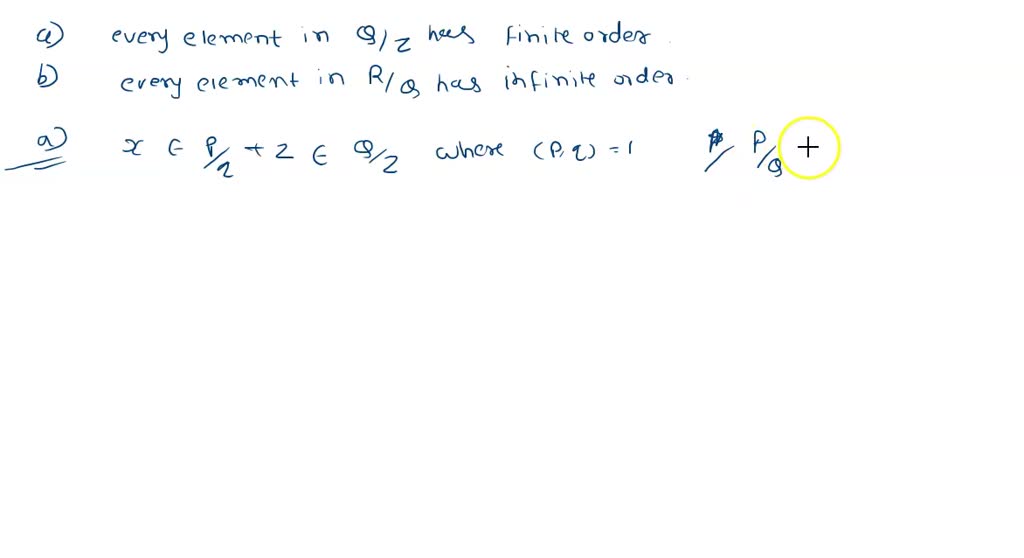 a) every element in Q/Z has finite order.
b) every element in R/Q has infinite order.
a) x ∈ P/q + Z ∈ Q/Z where (P, q) = 1 P/Q